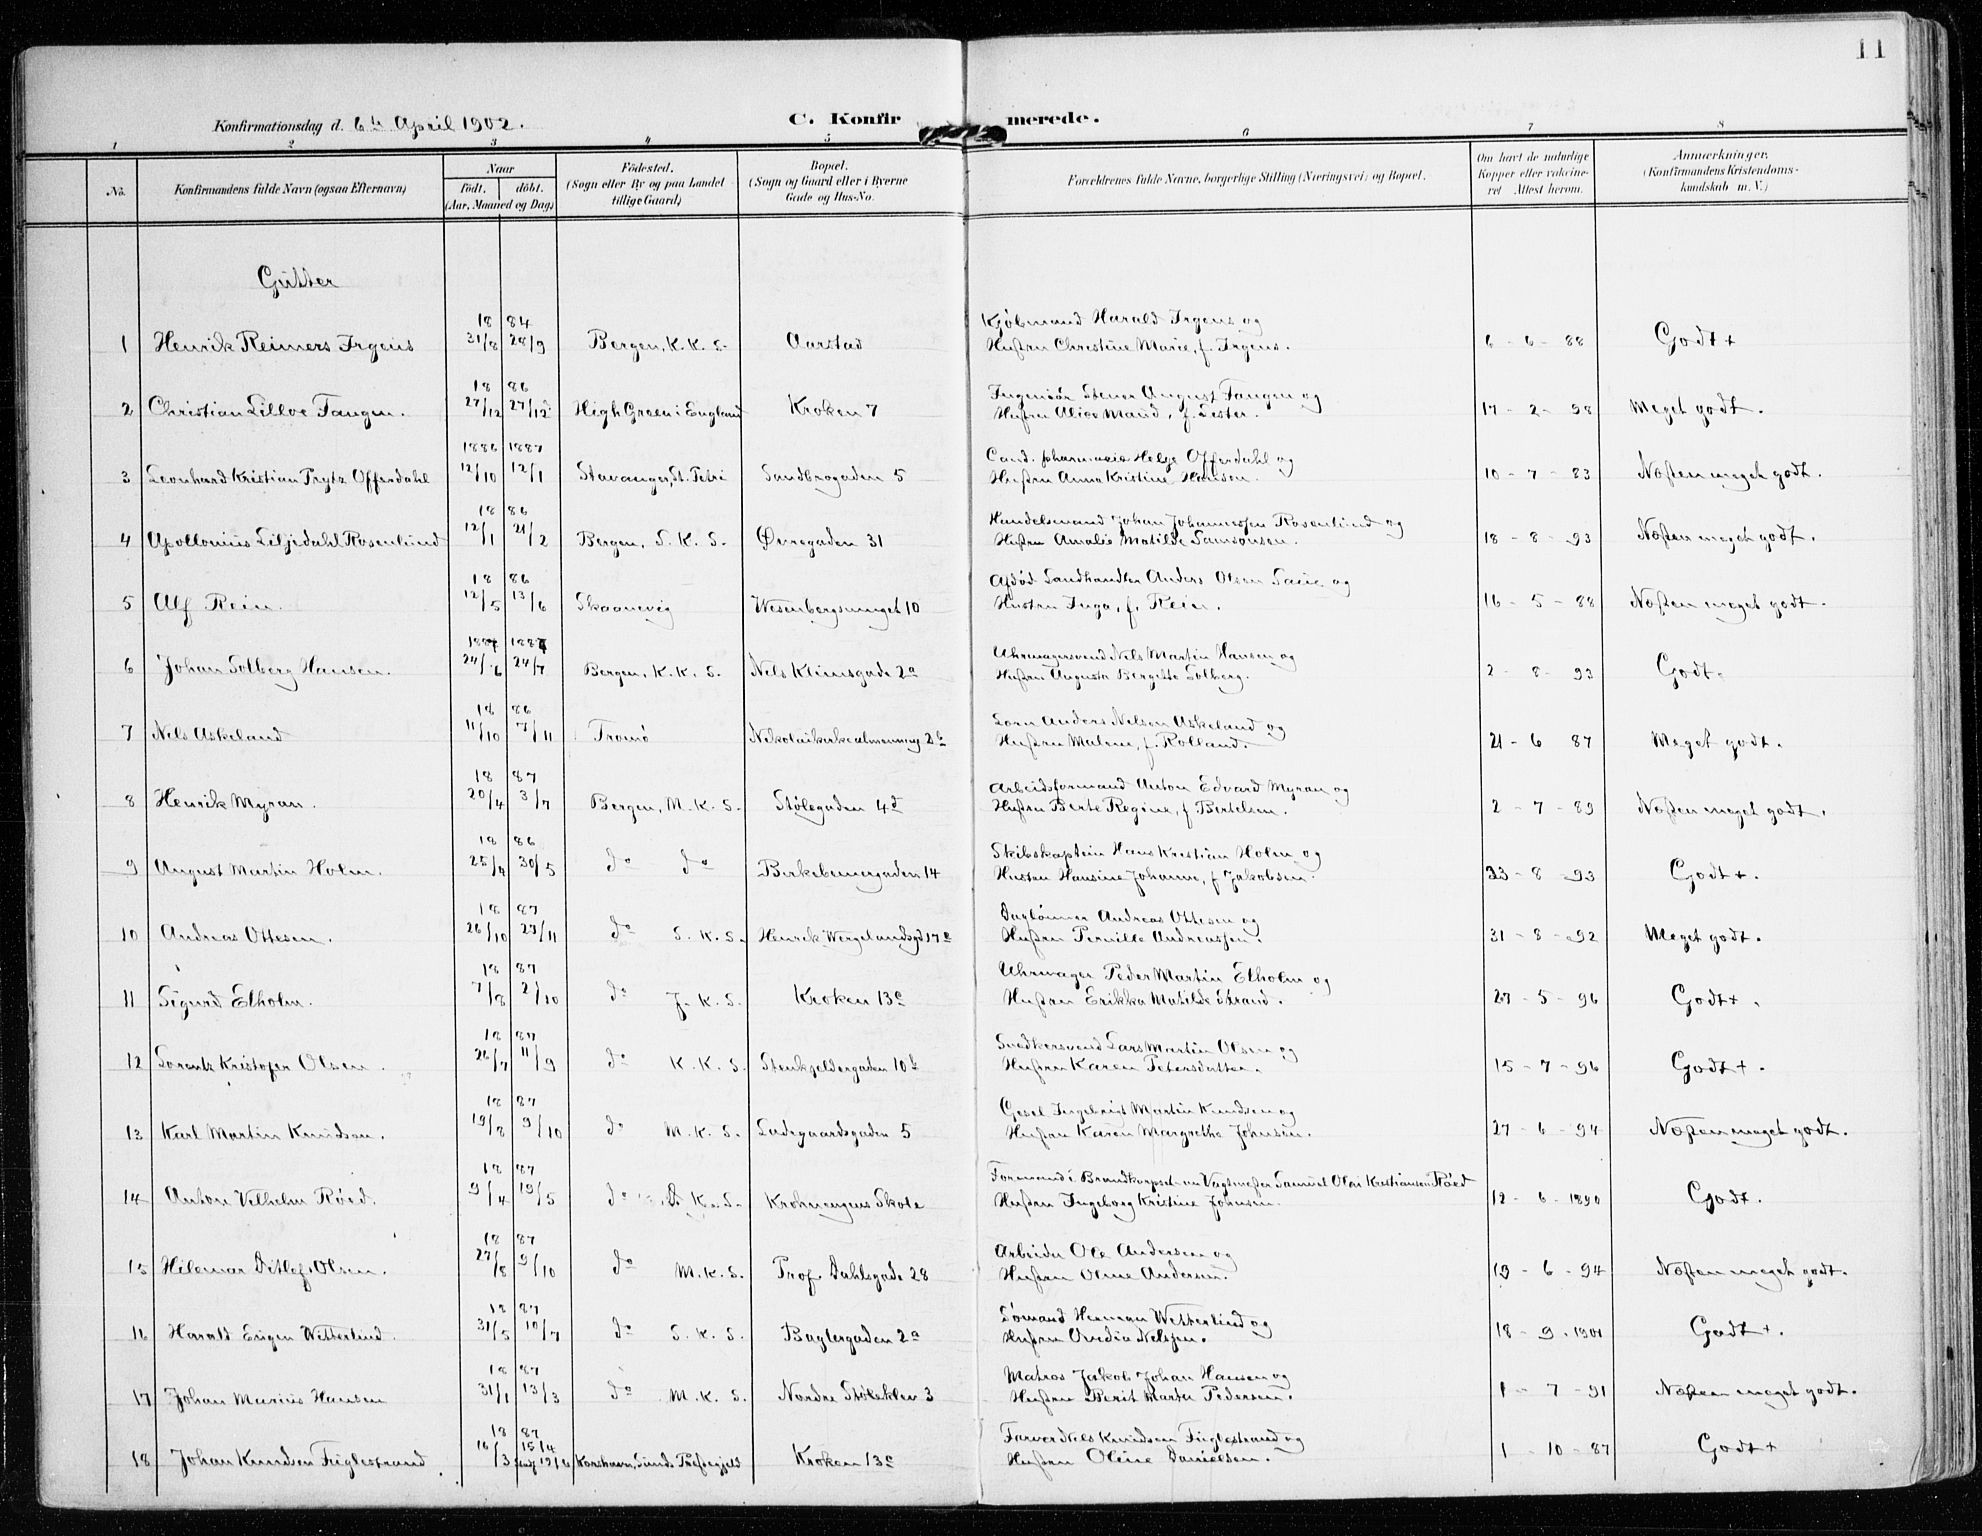 11
Konfirmationsdag d. 6te April 1902.
C. Konfirmerede.
1 2 3 4 5 6 7 8
No.
Konfirmandens fulde Navn (ogsaa Efternavn)
Naar
født. døbt.
(Aar, Maaned og Dag)
Födested.
(Sogn eller By og paa Landet
tillige Gaard)
Bopæl.
(Sogn og Gaard eller i Byerne
Gade og Hus-No.
Forældrenes fulde Navne, borgerlige Stilling (Næringsvei) og Bopæl.
Om havt de naturlige
Kopper eller vaccine-
ret Attest herom.
Anmærkninger.
(Konfirmandens Kristendoms-
kundskab m. V.)
Gutter
18 84 Kjøbmand Harald Irgens og
1 Henrik Reimers Irgens 31/8 28/9 Bergen, K. K. S. Aarstad Hustru Christine Marie, f. Irgens. 6 - 6 - 88 Godt +
18 86 Ingeniør Stener August Tangen og
2 Christian Lilloe Tangen. 27/12 27/12 High Green i England Kroken 7 Hustru Alice Maud, f. Lester. 17 - 2 - 98 Meget godt.
1886 1887 Cand. pharmacie Helge Offerdahl og
3 Leonhard Kristian Prytz Offerdahl 12/10 12/1 Stavanger, St. Petri Sandbrogaden 5 Hustru Anna Kristine Hansen. 10 - 7 - 83 Næsten meget godt.
18 86 Handelsmand Johan Johannessen Rosenlund og
4 Apollonius Liljedahl Rosenlund 12/1 21/2 Bergen, S. K. S. Øvregaden 31 Hustru Amalie Matilde Samsonsen. 18 - 8 - 93 Næsten meget godt.
18 86 Afdød Landhandler Anders Olsen og
5 Alf Rein. 12/5 13/6 Skaanevig Wesenbergsmuget 10 Hustru Inga, f. Rein. 16 - 5 - 88 Næsten meget godt.
1887 1887 Uhrmagersvend Nels Martin Hansen og
6 Johan Solberg Hansen. 24/6 24/7 Bergen, K. K. S. Nels Klimsgade 2a Hustru Augusta Bergitte Solberg. 2 - 8 - 93 Godt.
18 86 Anders Nelsen Askeland og
7 Nels Askeland 11/10 7/11 Tromø Nikolaikirkealmenning 2b Hustru Malene, f. Rolland. 21 - 6 87 Meget godt.
18 87 Arbeidsformand Anton Edvard Myran og
8 Henrik Myran. 20/4 3/7 Bergen, M. K. S. Stølegaden 4d Hustru Berte Regine, f. Bertelsen. 2 - 7 - 89 Næsten meget godt.
18 86 Skibskaptein Hans Kristian Holm og
9 August Martin Holm. 25/4 30/5 do do Birkebeinergaden 14 Hustru Hansine Johanne, f. Jakobsen. 23 - 8 - 93 Godt +.
18 87 Daglønner Andreas Ottesen og
10 Andreas Ottesen. 26/10 27/11 do S. K. S. Henrik Wergelandsgd 17c Hustru Pernille Andreassen. 31 - 8 - 92 Meget godt.
18 87 Uhrmager Peder Martin Elholm og
11 Sigurd Elholm. 7/8 2/10 do J. K. S. Kroken 13c Hustru Erikka Matilde Strand. 27 - 5 - 96 Godt +.
18 87 Snedkersvend Lars Martin Olsen og
12 Lorentz Kristofer Olsen. 26/7 11/9 do K. K. S. Stenkjeldergaden 10b Hustru Karen Petersdatter. 15 - 7 - 96 Godt +.
18 87 Gesel Ingebrigt Martin Knudsen og
13 Karl Martin Knudsen. 19/8 9/10 do M. K. S. Ladegaardsgaden 5 Hustru Karen Margrethe Johnsen. 27 - 6 - 94 Næsten meget godt.
18 87 Formand i Brandkorpset Samuel Olai Kristiansen Røed
14 Anton Vilhelm Røed. 9/4 19/5 do D. K. S. Krohnengens Skole Hustru Ingeborg Kristine Johnsen. 12 - 6 - 1890 Godt.
18 87 Arbeider Ole Andersen og
15 Hilmar Ditlef Olsen. 27/8 9/10 do M. K. S. Prof. Dahlsgade 28 Hustru Oline Andersen. 19 - 6 - 94 Næsten meget godt.
18 87 Sømand Herman Wetterlind og
16 Harald Eugen Wetterlind. 31/5 10/7 do S. K. S. Baglergaden 2a Hustru Ovedia Nelssen. 18 - 9 - 1901 Godt +.
18 87 Matros Jakob Johan Hansen og
17 Johan Marius Hansen 31/1 13/3 do M. K. S. Nordre Støleklev 3 Hustru Berit Marta Pedersen. 1 - 7 - 91 Næsten meget godt.
18 87 Farver Nels Knudsen Fuglestrand og
18 Johan Knudsen Fuglestrand 16/3 15/4 Korshavn, Sunds Præstegjeld Kroken 13c Hustru Oline Danielsen. 1 - 10 - 87 Godt +